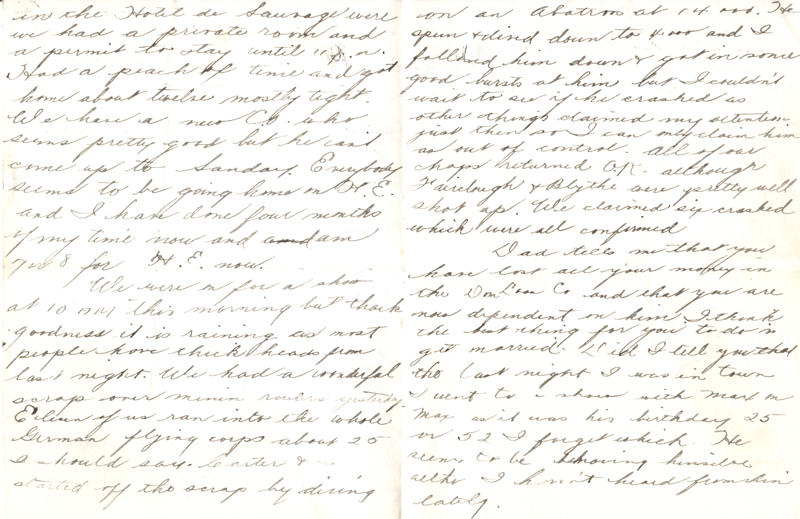 in the Hotel de Sauvage were
we had a private room and
a permit to stay until 11 p.m.
Had a peach of time and got
home about twelve mostly tight.
We have a new Co. who
seems pretty good but he cant
come up to Sanday. Everybody
seems to be going home on H.E.
and I have done four months
of my time now and am
7 or 8 for H.E. now.
We were on for a show
at 10 this morning but thank
goodness it is raining as most
people have thick heads from
last night. We had a wonderful
scrap over yesterday
Eleven of us ran into the whole
German flying corps about 25
I should say. Carter &
started off the scrap by diving
on an Abatros at 14000. He
spun & dived down to 4000 and I
followed him down & got in some
good bursts at him but I couldn't
wait to see if he crashed as
other things claimed my attention
just then so I can only claim him
as out of control. All of our
chaps returned O.K. although
Fairclough & Blythe were pretty well
shot up. We claimed six crashed
which were all confirmed
Dad tells me that you
have lost all your money in
the Co and that you are
now dependent on him. I think
the best thing for you to do is
get married. Did I tell you that
the last night I was in town
I went to a show with
Max as it was his birthday 25
or 52 I forget which. He
seems to be behaving himself
altho I havn't heard from him
lately.